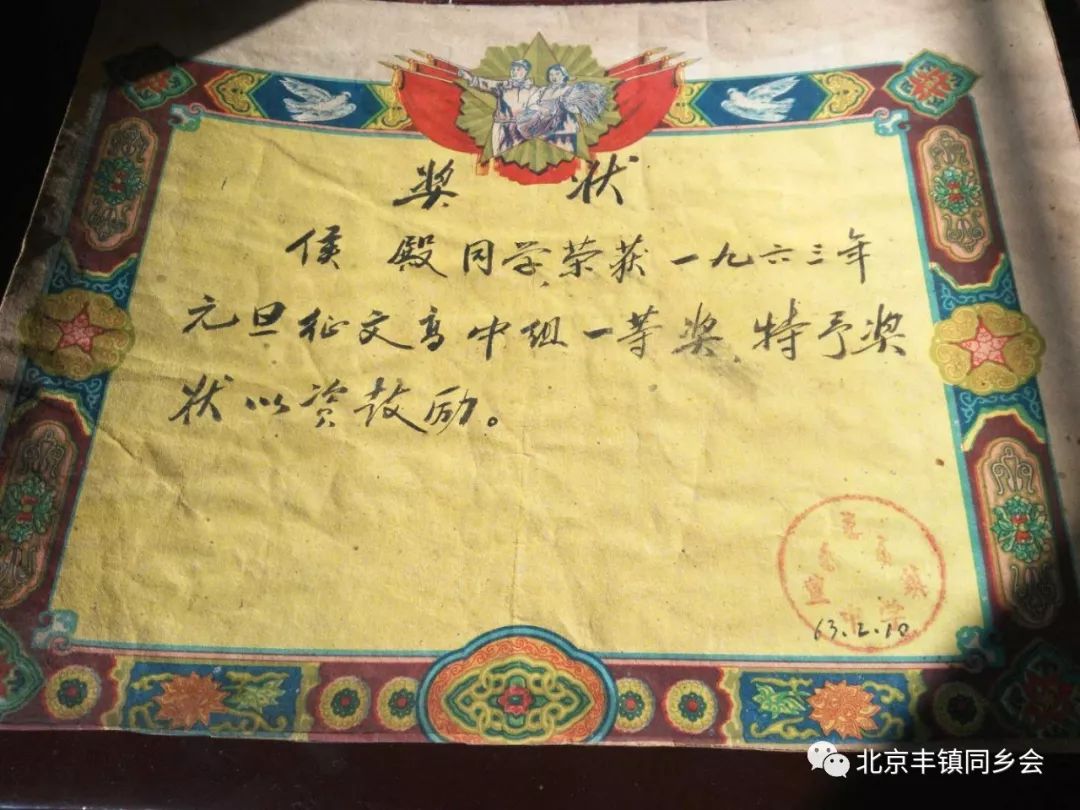 奖 状
侯 殿同学荣获一九六三年
元旦征文高中组一等奖、特予奖
状以资鼓励。
63.2.10
北京丰镇同乡会